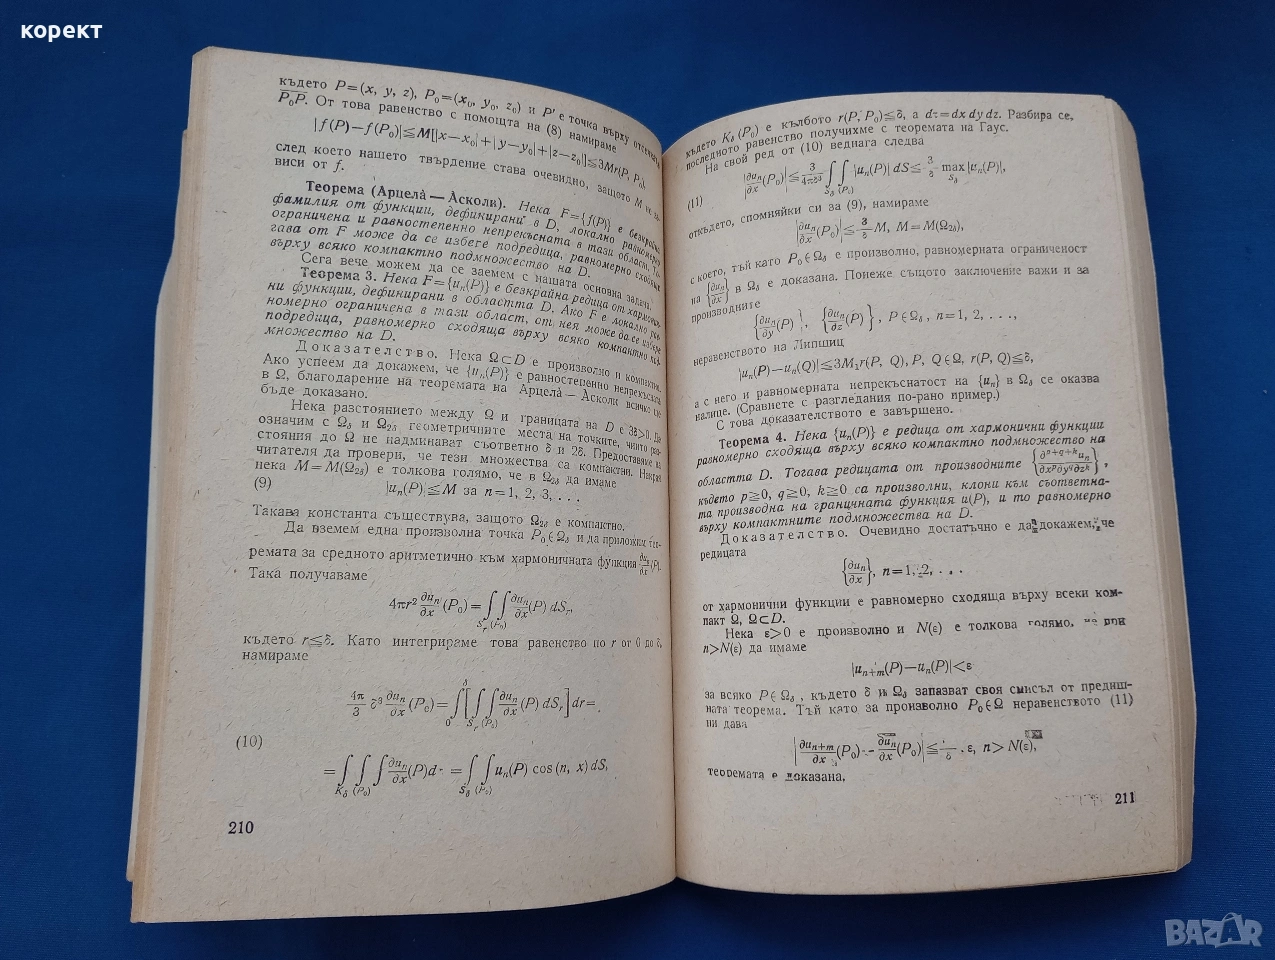 корект
където P=(x, y, z), P₀=(x₀, y₀, z₀) и P′ е точка върху отсечката
P₀P. От това равенство с помощта на (8) намираме
|f(P)−f(P₀)|≦M[|x−x₀|+|y−y₀|+|z−z₀|]≦3Mr(P, P₀),
след което нашето твърдение става очевидно, защото M не за-
виси от f.
Теорема (Арцела̀ — Асколи). Нека F={f(P)} е безкрайна
фамилия от функции, дефинирани в D, локално равномерно
ограничена и равностепенно непрекъсната в тази област. То-
гава от F може да се избере подредица, равномерно сходяща
върху всяко компактно подмножество на D.
Сега вече можем да се заемем с нашата основна задача.
Теорема 3. Нека F={uₙ(P)} е безкрайна редица от хармонич-
ни функции, дефинирани в областта D. Ако F е локално рав-
номерно ограничена в тази област, от нея може да се избере
подредица, равномерно сходяща върху всяко компактно под-
множество на D.
Доказателство. Нека Ω⊂D е произволно и компактно.
Ако успеем да докажем, че {uₙ(P)} е равностепенно непрекъсната
в Ω, благодарение на теоремата на Арцела̀ — Асколи всичко ще
бъде доказано.
Нека разстоянието между Ω и границата на D е 3δ>0. Да
означим с Ω_δ и Ω_2δ геометричните места на точките, чиито раз-
стояния до Ω не надминават съответно δ и 2δ. Предоставяме на
читателя да провери, че тези множества са компактни. Накрая
нека M=M(Ω_2δ) е толкова голямо, че в Ω_2δ да имаме
(9) |uₙ(P)|≦M за n=1, 2, 3, . . .
Такава константа съществува, защото Ω_2δ е компактно.
Да вземем една произволна точка P₀∈Ω_δ и да приложим тео-
ремата за средното аритметично към хармоничната функция ∂uₙ/∂x (P).
Така получаваме
4πr² ∂uₙ/∂x (P₀)=∫∫_{S_r (P₀)} ∂uₙ/∂x (P) dS_r,
където r≦δ. Като интегрираме това равенство по r от 0 до δ,
намираме
4π/3 δ³ ∂uₙ/∂x (P₀)=∫₀^δ [∫∫_{S_r (P₀)} ∂uₙ/∂x (P) dS_r] dr=
(10)
=∫∫∫_{K_δ (P₀)} ∂uₙ/∂x (P)dτ =∫∫_{S_δ (P₀)} uₙ(P) cos (n, x) dS,
210
където K_δ (P₀) е кълбото r(P, P₀)≦δ, а dτ=dx dy dz. Разбира се,
последното равенство получихме с теоремата на Гаус.
На свой ред от (10) веднага следва
(11) |∂uₙ/∂x (P₀)|≦3/4πδ³ ∫∫_{S_δ (P₀)} |uₙ(P)| dS≦ 3/δ max_{S_δ} |uₙ(P)|,
откъдето, спомняйки си за (9), намираме
|∂uₙ/∂x (P₀)|≦ 3/δ M, M=M(Ω_2δ),
с което, тъй като P₀∈Ω_δ е произволно, равномерната ограниченост
на {∂uₙ/∂x} в Ω_δ е доказана. Понеже същото заключение важи и за
производните
{∂uₙ/∂y (P)}, {∂uₙ/∂z (P)}, P∈Ω_δ, n=1, 2, . . .,
неравенството на Липшиц
|uₙ(P)−uₙ(Q)|≦3M₁r(P, Q), P, Q∈Ω, r(P, Q)≦δ,
а с него и равномерната непрекъснатост на {uₙ} в Ω_δ се оказва
налице. (Сравнете с разгледания по-рано пример.)
С това доказателството е завършено.
Теорема 4. Нека {uₙ(P)} е редица от хармонични функции
равномерно сходяща върху всяко компактно подмножество на
областта D. Тогава редицата от производните {∂^{p+q+k}uₙ/∂x^p∂y^q∂z^k},
където p≧0, q≧0, k≧0 са произволни, клони към съответна-
та производна на граничната функция u(P), и то равномерно
върху компактните подмножества на D.
Доказателство. Очевидно достатъчно е да докажем, че
редицата
{∂uₙ/∂x}, n=1, 2, . . .
от хармонични функции е равномерно сходяща върху всеки ком-
пакт Ω, Ω⊂D.
Нека ε>0 е произволно и N(ε) е толкова голямо, че при
n>N(ε) да имаме
|uₙ₊ₘ(P)−uₙ(P)|<ε
за всяко P∈Ω_δ, където δ и Ω_δ запазват своя смисъл от предиш-
ната теорема. Тъй като за произволно P₀∈Ω неравенството (11)
ни дава
|∂uₙ₊ₘ/∂x (P₀) − ∂uₙ/∂x (P₀)|≦ /δ . ε, n> N(ε),
теоремата е доказана.
211
BAZAR